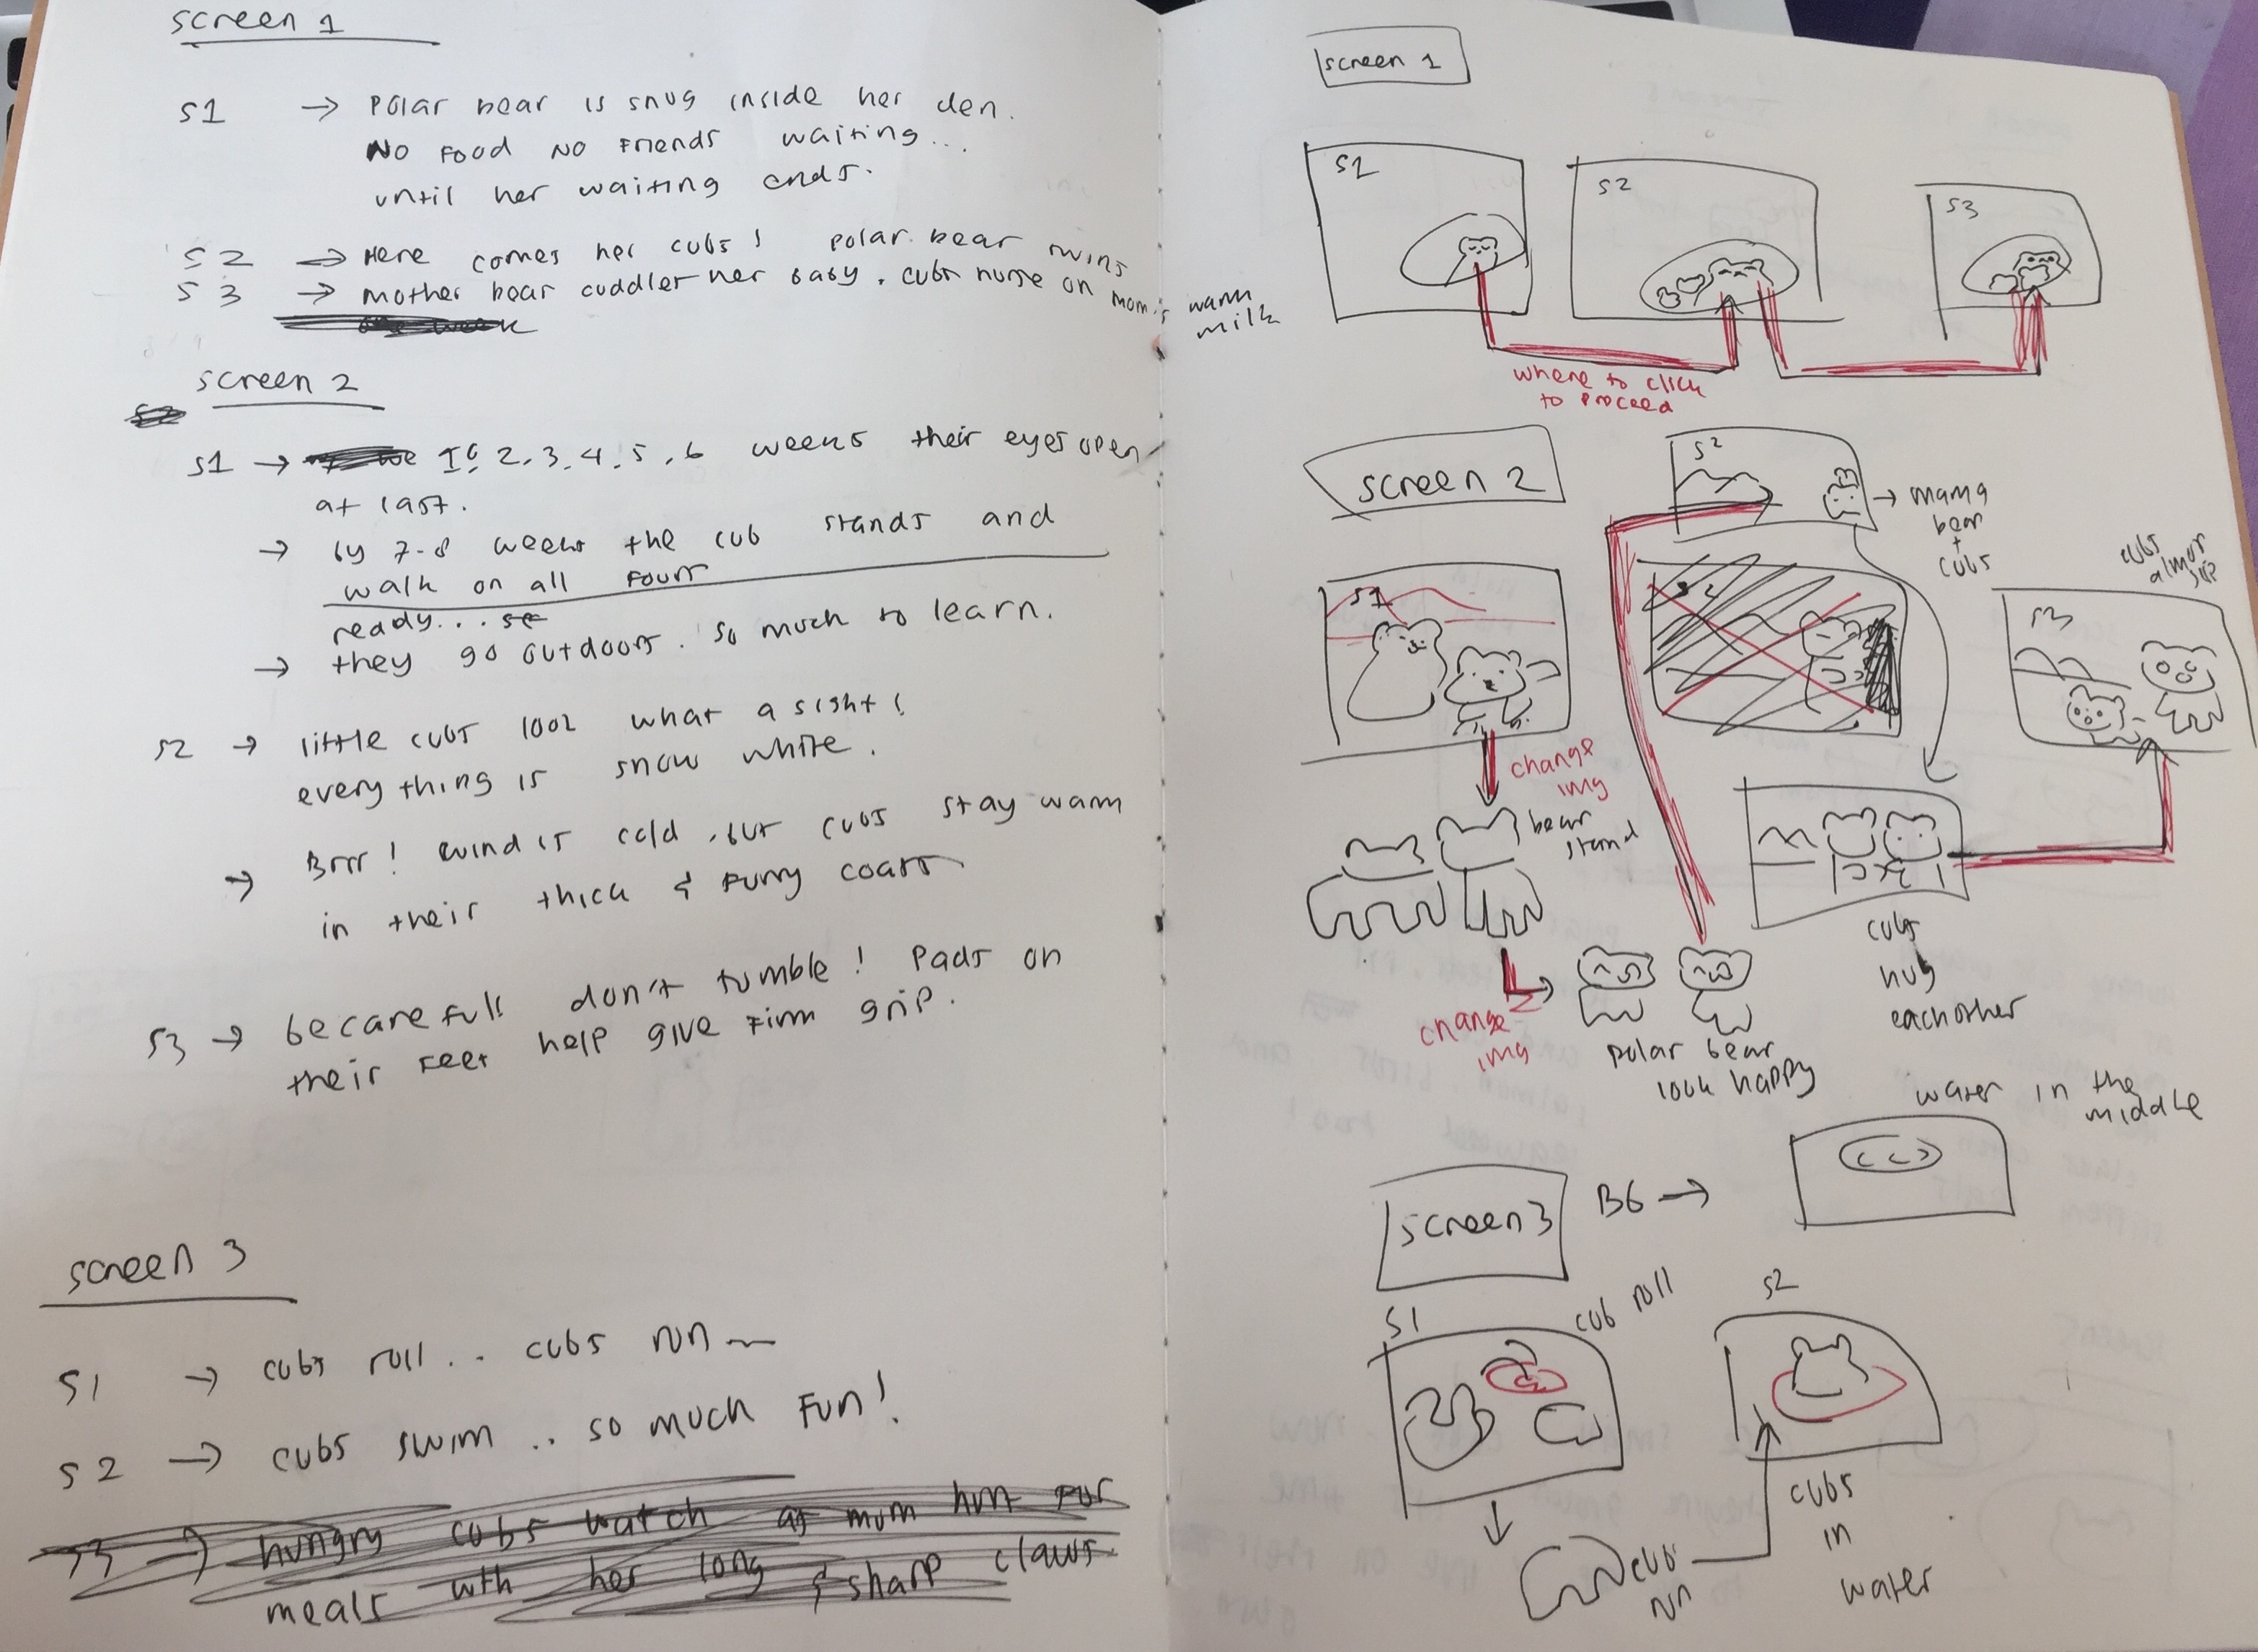 screen 1
S1 → Polar bear is snug inside her den.
No food No Friends waiting...
until her waiting ends.
S2 → Here comes her cubs! polar bear twins
S3 → mother bear cuddler her baby. cubs nurse on mom's warm
milk
screen 2
S1 → 2, 3, 4, 5, 6 weeks their eyes open
at last.
→ by 7-8 weeks the cub stands and
walk on all fours
ready...
→ they go outdoors. so much to learn.
S2 → little cubs look what a sight!
everything is snow white.
→ Brrr! wind is cold, but cubs stay warm
in their thick & furry coats
S3 → be carefull don't tumble! Pads on
their feet help give firm grip.
screen 3
S1 → cubs roll.. cubs run
S2 → cubs swim .. so much fun!
S3 → hungry cubs watch as mum hunt for
meals with her long & sharp claws.
screen 1
S1
S2
S3
where to click
to proceed
screen 2
S2
→ mama
bear
+
cubs
S1
cubs
almost
slip
S3
change
img
bear
stand
change
img
polar bear
look happy
cubs
hug
eachother
water in the
middle
screen 3
BG →
S1
cub roll
S2
cub
run
cubs
in
water